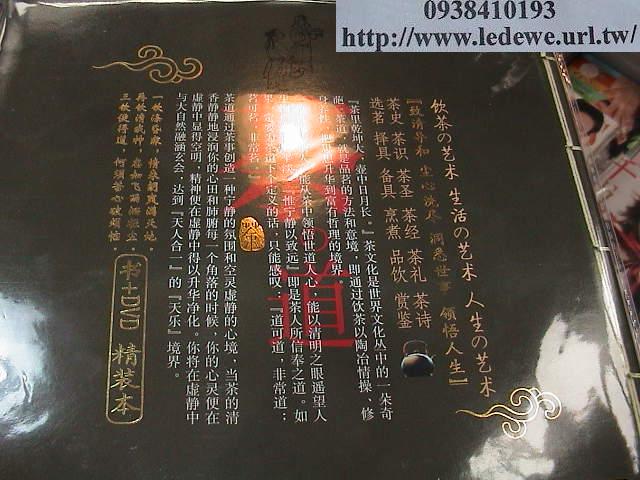 0938410193
http://www.ledewe.url.tw/
饮茶の艺术 生活の艺术 人生の艺术
『致清导和 尘心洗尽 洞悉世事 领悟人生』
茶史 茶识 茶圣 茶经 茶礼 茶诗
选茗 择具 备具 烹煮 品饮 赏鉴
『茶里乾坤大，壶中日月长。』茶文化是世界文化丛中的一朵奇
葩，茶道，就是品茗的方法和意境，即通过饮茶以陶冶情操、修
升华到富有哲理的境界。
能从茶中领悟世道人心，能以清明之眼遥望人
宁静以致远』即是茶人所信奉之道。如
果一定要 茶道下个定义的话，只能感叹：『道可道，非常道；
茗可茗，非常茗。』
茶道通过茶事创造一种宁静的氛围和空灵虚静的心境，当茶的清
香静静地浸润你的心田和肺腑每一个角落的时候，你的心灵便在
虚静中显得空明，精神便在虚静中得以升华净化，你将在虚静中
与大自然融涵玄会，达到『天人合一』的『天乐』境界。
一饮涤昏寐，情来朗爽满天地；
再饮清我神，忽如飞雨洒轻尘；
三饮便得道，何须苦心破烦恼。
书+DVD 精装本
道